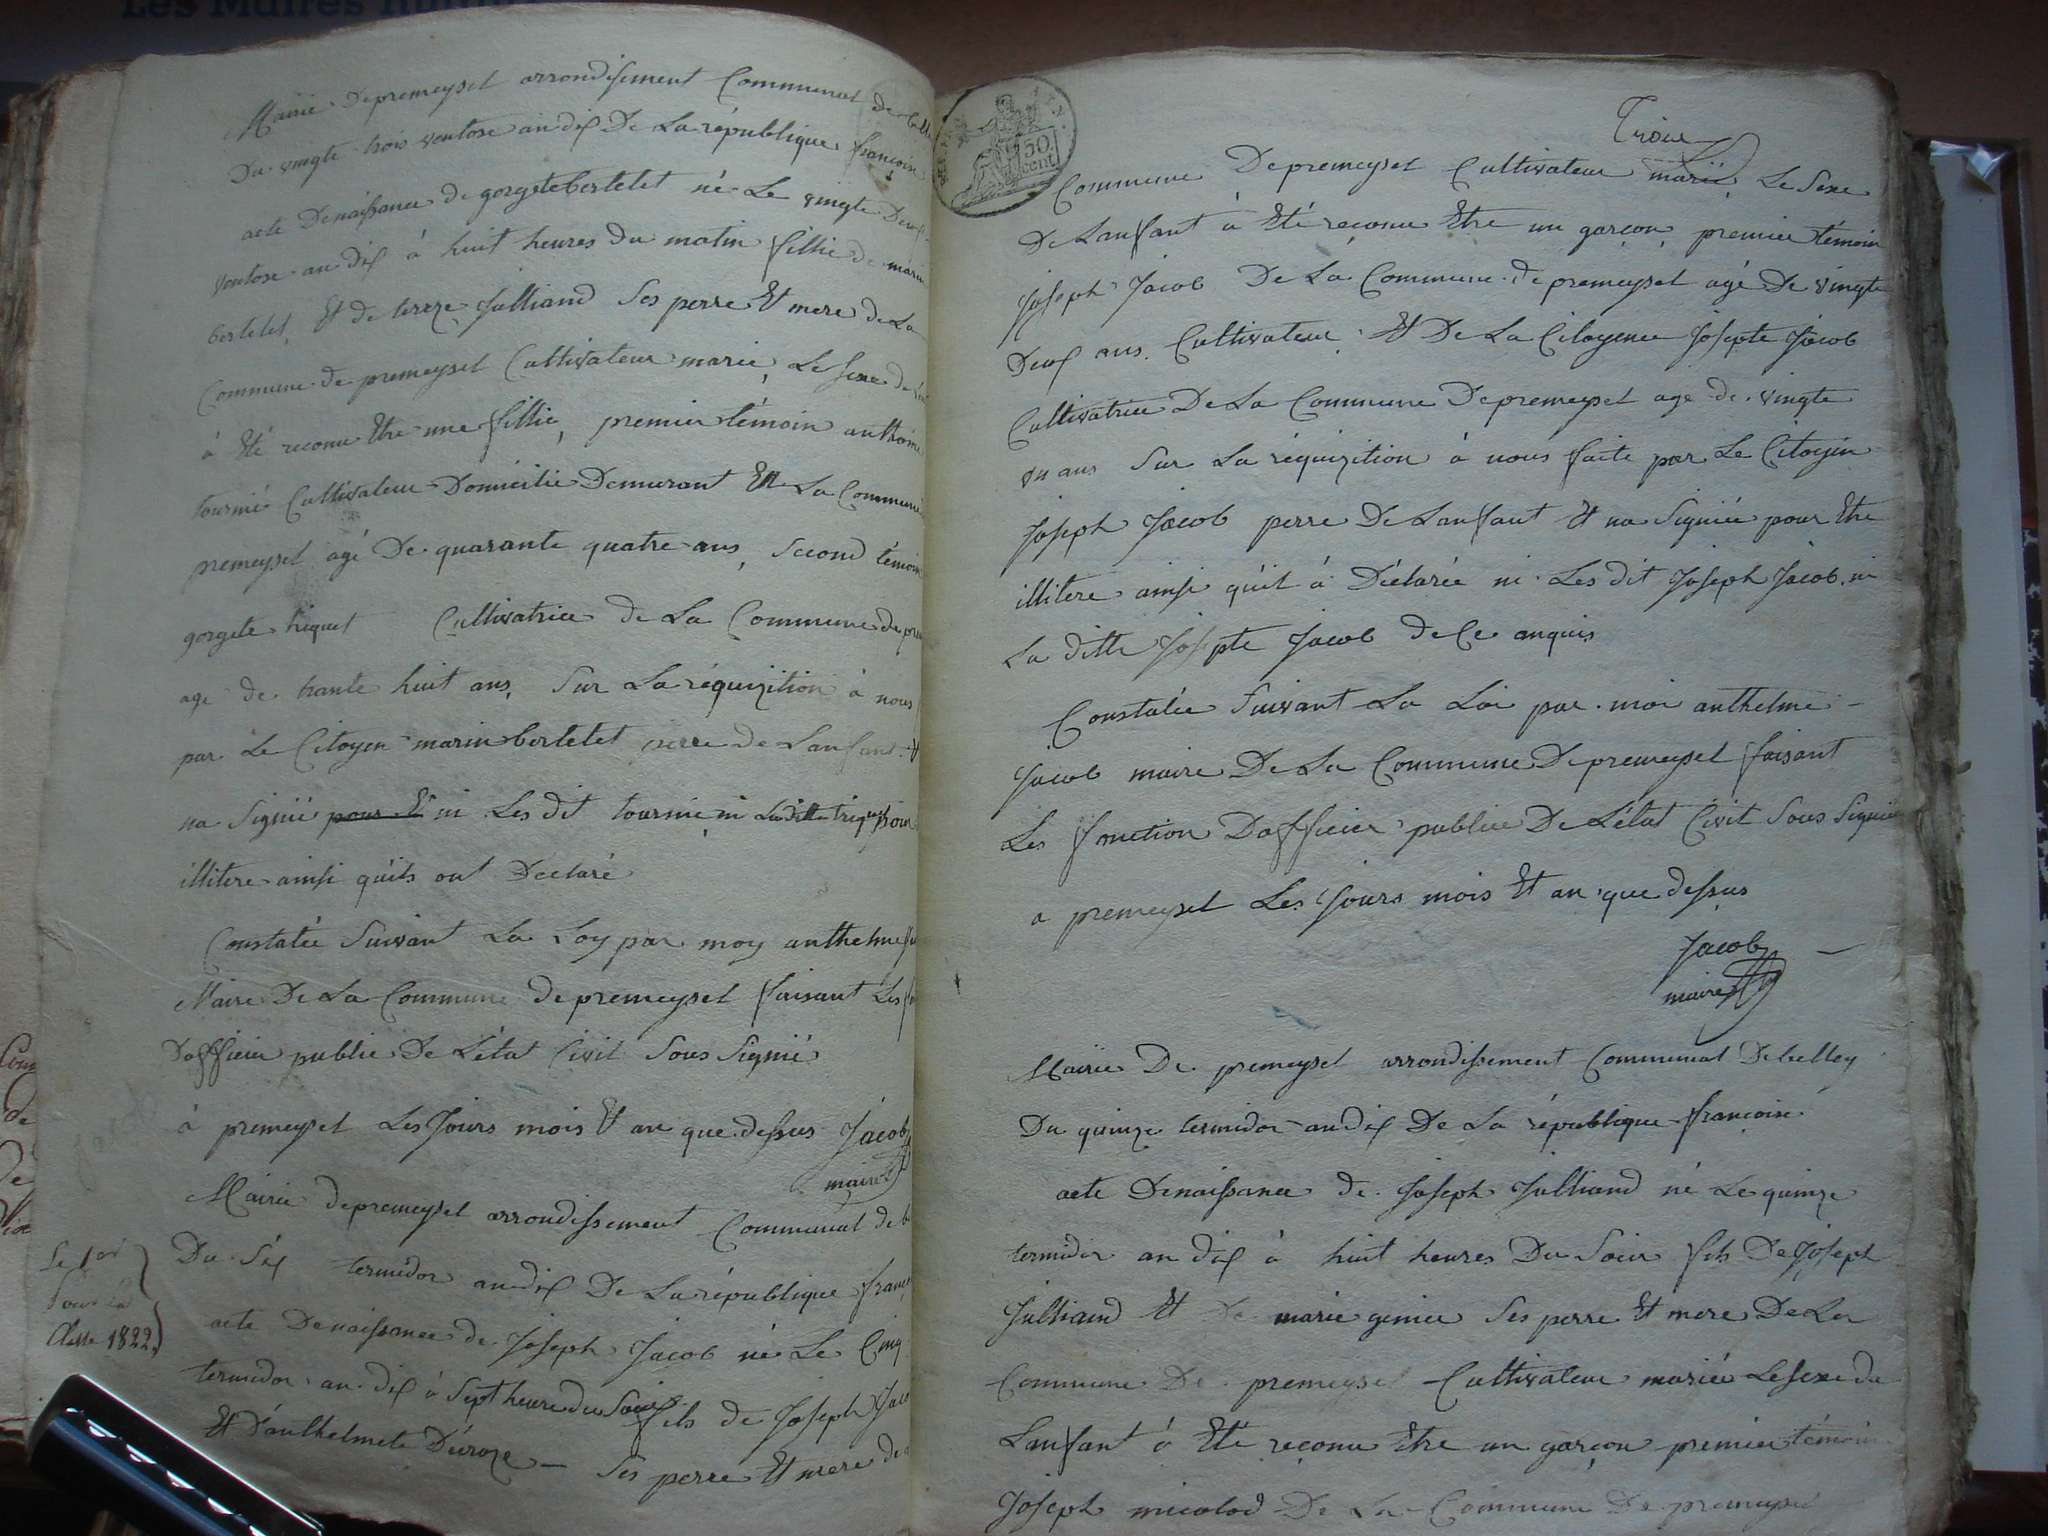 Les Maires
Mairie Depremeysel arrondisement Communal de
Du vingte trois ventose an dix De La république françoise
acte Denaissance de gorgete bertelet né Le vingte Deux
ventose an dix à huit heures du matin fillie de marin
bertelet Et de tereze Julliand Ses perre Et mere de La
Commune de premeysel Cultivateur marié Le Sexe de
à Eté reconu Etre une fillie, premier témoin anthoine
tournié Cultivateur Domicilié Demurant En La Commune
premeysel agé De quarante quatre ans, Second témoin
gorgete Cultivatrice de La Commune de
age de trante huit ans, Sur La réquizition à nous
par Le Citoyen marin bertelet perre de Lanfant Et
na Signié pour Et ni Les dit tournié ni La ditte pour
illitere ainsi quils ont Déclaré
Constatée Suivant La Loy par moy anthelme
Maire De La Commune de premeysel faisant Les
Dofficier public De Létat Civil Sous Signié
à premeysel Les Jours mois Et an que dessus Jacob
maire
Mairie depremeysel arrondissement Communal de
Du Six termidor an dix De La république
acte Denaissance de Joseph Jacob né Le Cinq
termidor an dix à Sept heure du Soir fils de Joseph
Et D'anthelmete Déroze — Ses perre Et mere de
Le 1er
Pour la
Classe 1822
50
cent
Troix
Commune Depremeysel Cultivateur marié Le Sexe
De Lanfant à Eté reconu Etre un garçon, premier témoin
Joseph Jacob De La Commune de premeysel agé De vingte
Deux ans Cultivateur Et De La Citoyenne Josepte Jacob
Cultivatrice De La Commune Depremeysel age de vingte
un ans Sur La réquizition à nous faite par Le Citoyin
Joseph Jacob perre De Lanfant Et na Signiée pour Etre
illitere ainsi quil à Déclarée ni Les dit Joseph Jacob ni
La ditte Josepte Jacob de Ce anquis
Constatée Suivant La Loi par moi anthelme
Jacob maire De La Commune Depremeysel faisant
Les fonction Dofficier public De Létat Civil Sous Signié
a premeysel Les Jours mois Et an que dessus
Jacob
maire
Mairie De premeysel arrondissement Communal Debelley
Du quinze termidor an dix De La république françoise
acte Denaissance de Joseph Julliand né Le quinze
termidor an dix à huit heures Du Soir fils De Joseph
Julliand Et De marie genier Ses perre Et mere De La
Commune De premeysel Cultivateur mariée Le Sexe du
Lanfant à Eté reconu Etre un garçon premier témoin
Joseph micolod De La Commune De premeysel